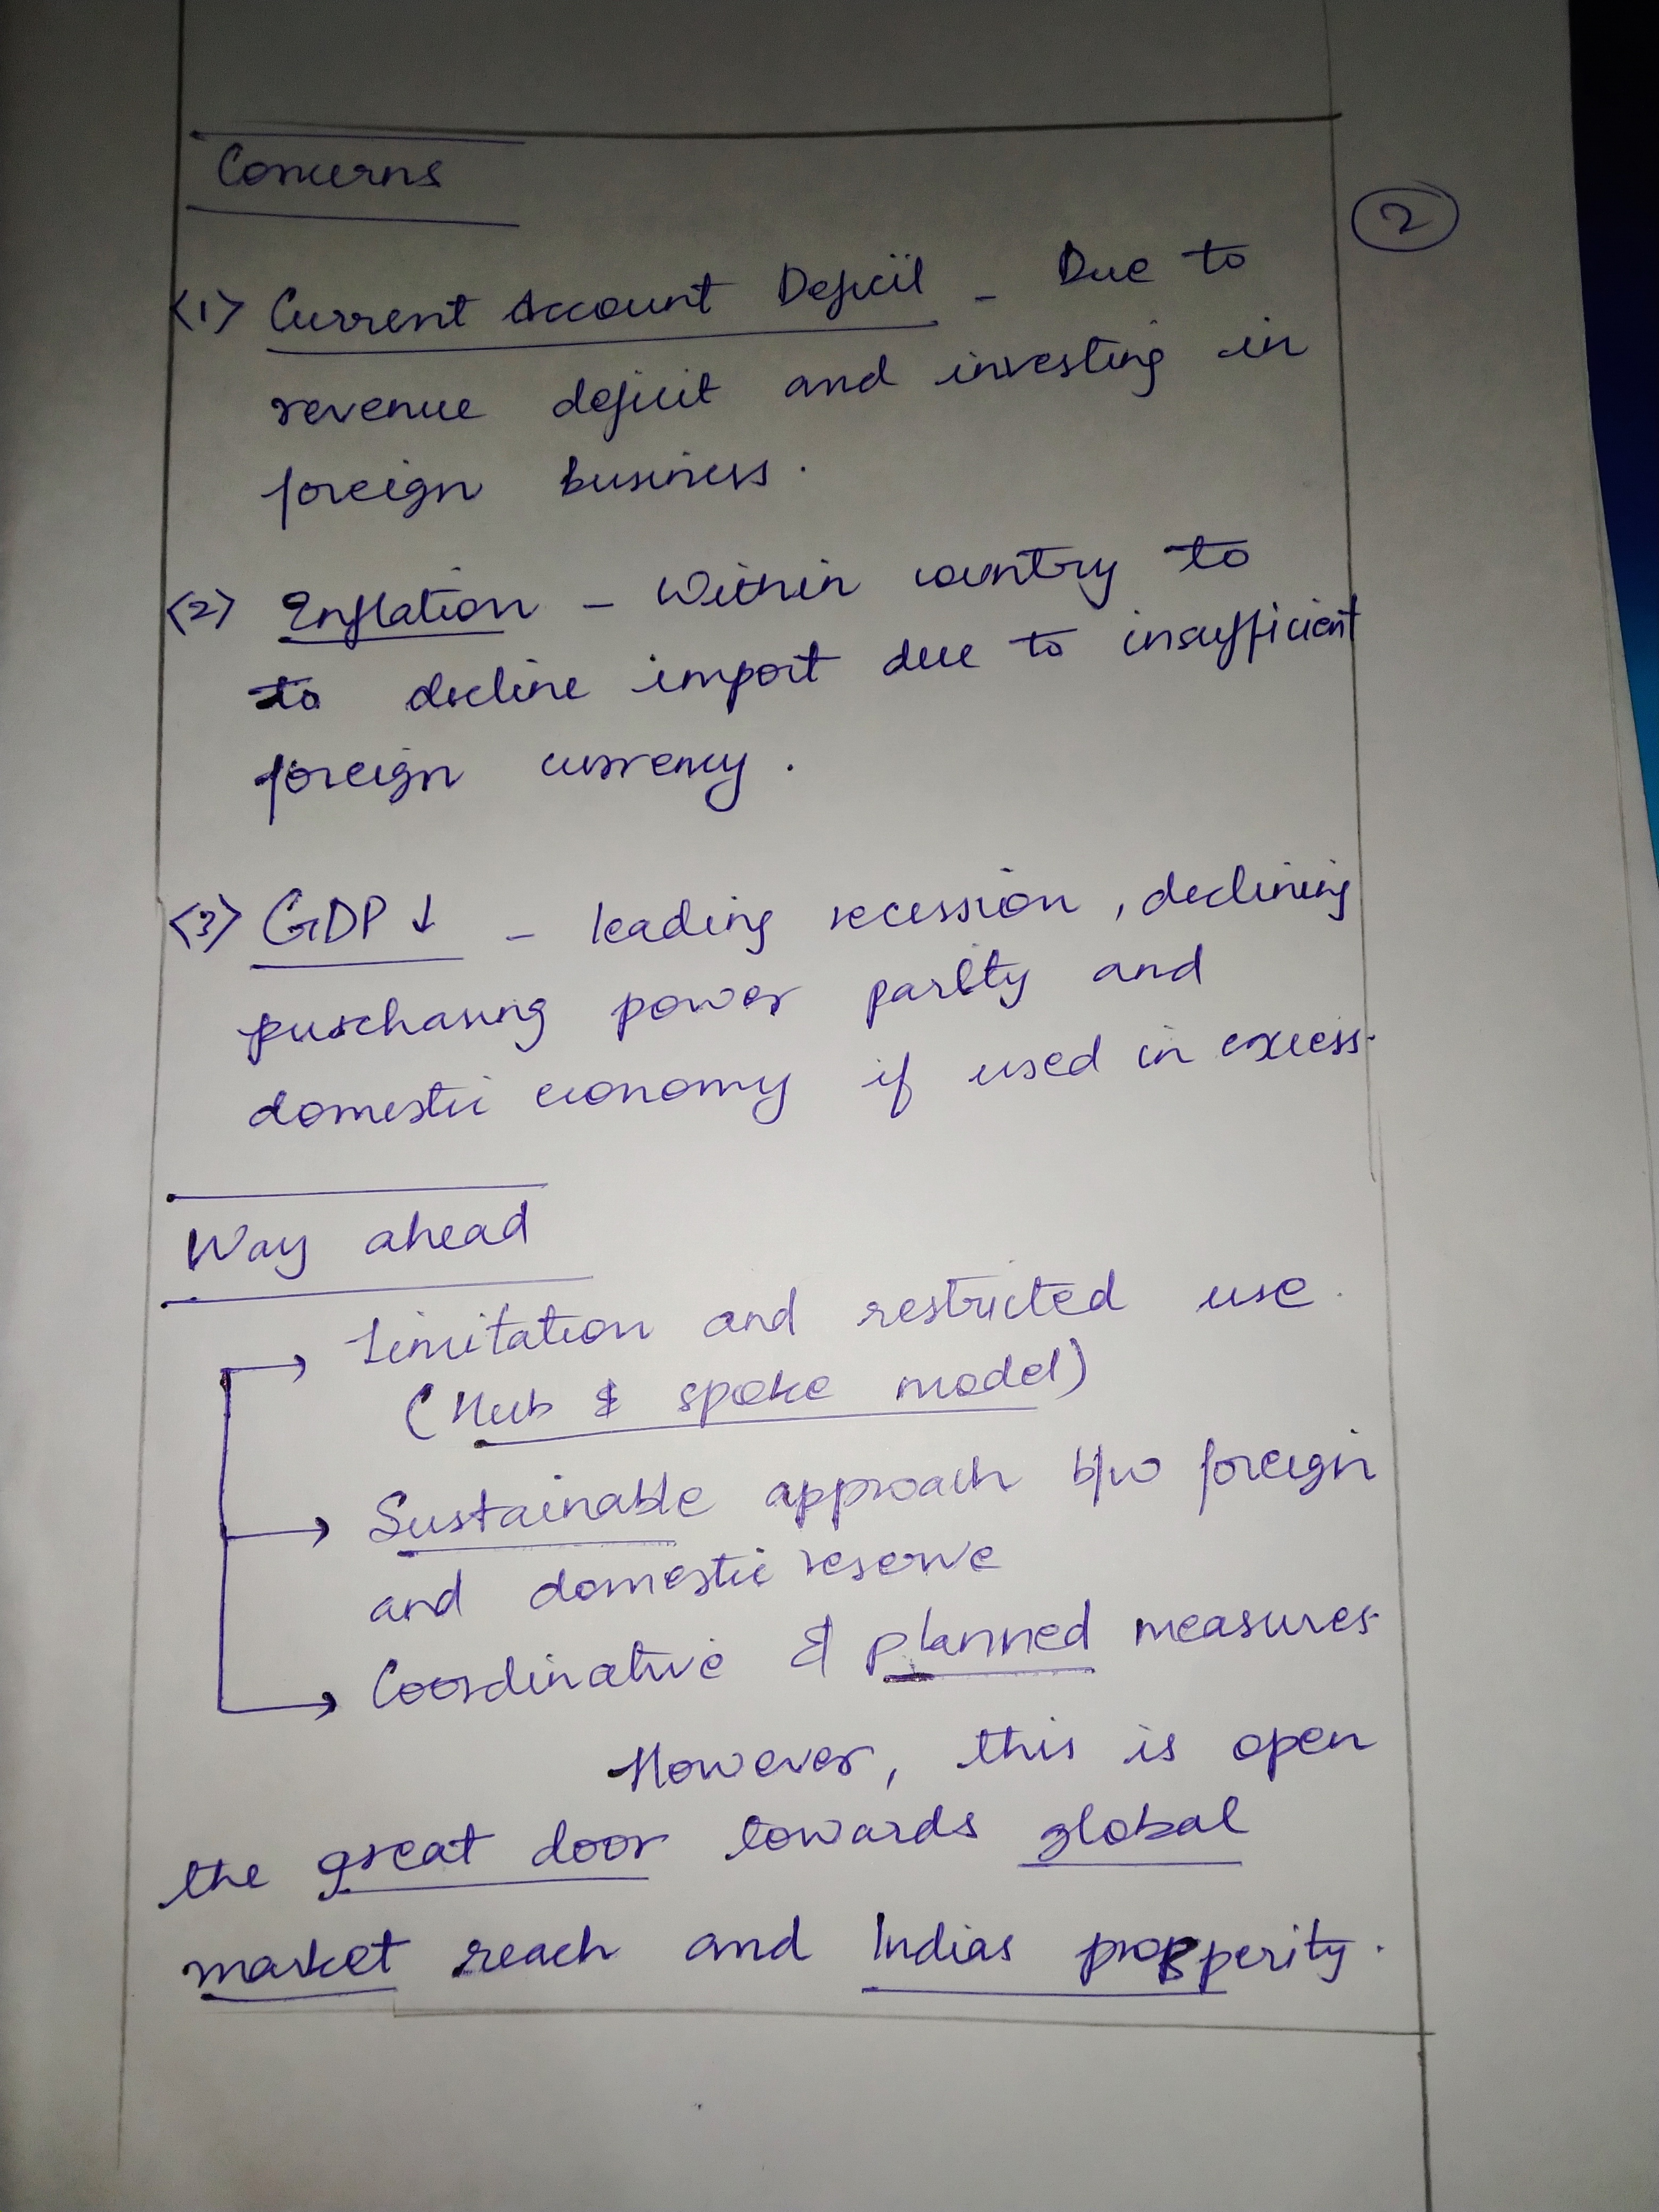 Concerns
2
<1> Current Account Deficit - Due to
revenue deficit and investing in
foreign business.
<2> Inflation - Within country to
to decline import due to insufficient
foreign currency.
<3> GDP ↓ - leading recession, declining
purchasing power parity and
domestic economy if used in excess.
Way ahead
→ Limitation and restricted use.
(Hub & spoke model)
→ Sustainable approach b/w foreign
and domestic reserve
→ Coordinative & planned measures.
However, this is open
the great door towards global
market reach and Indias prosperity.